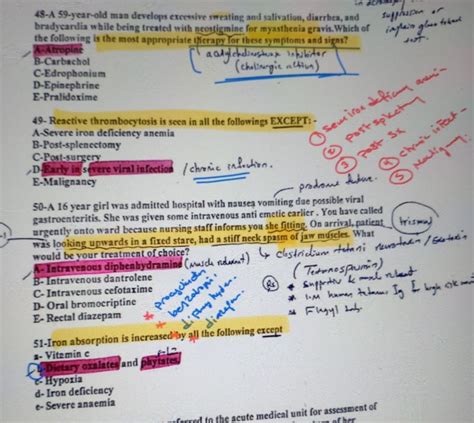 48-A 59-year-old man develops excessive sweating and salivation, diarrhea, and
bradycardia while being treated with neostigmine for myasthenia gravis.Which of
the following is the most appropriate therapy for these symptoms and signs?
A-Atropine
B-Carbachol
C-Edrophonium
D-Epinephrine
E-Pralidoxime
acetylcholinesterase inhibitor
(cholinergic action)
suppression or
49- Reactive thrombocytosis is seen in all the followings EXCEPT: -
A-Severe iron deficiency anemia
B-Post-splenectomy
C-Post-surgery
D-Early in severe viral infection / chronic infection.
E-Malignancy
① severe iron deficiency anemia
② post-splenectomy
③ post sx
④ chronic infect-
⑤ Malignancy
prodrome feature.
50-A 16 year girl was admitted hospital with nausea vomiting due possible viral
gastroenteritis. She was given some intravenous anti emetic earlier . You have called
urgently onto ward because nursing staff informs you she fitting. On arrival, patient
was looking upwards in a fixed stare, had a stiff neck spasm of jaw muscles. What
would be your treatment of choice?
(trismus)
A- Intravenous diphenhydramine (muscle relaxant)
B- Intravenous dantrolene
C- Intravenous cefotaxime
D- Oral bromocriptine
E- Rectal diazepam
Clostridium tetani
(Tetanospasmin)
* Supportive & muscle relaxant
* IM human tetanus Ig
* Flagyl
procyclidine
51-Iron absorption is increased by all the following except
a- Vitamin c
b-Dietary oxalates and phytates.
c- Hypoxia
d- Iron deficiency
e- Severe anaemia
referred to the acute medical unit for assessment of
of her